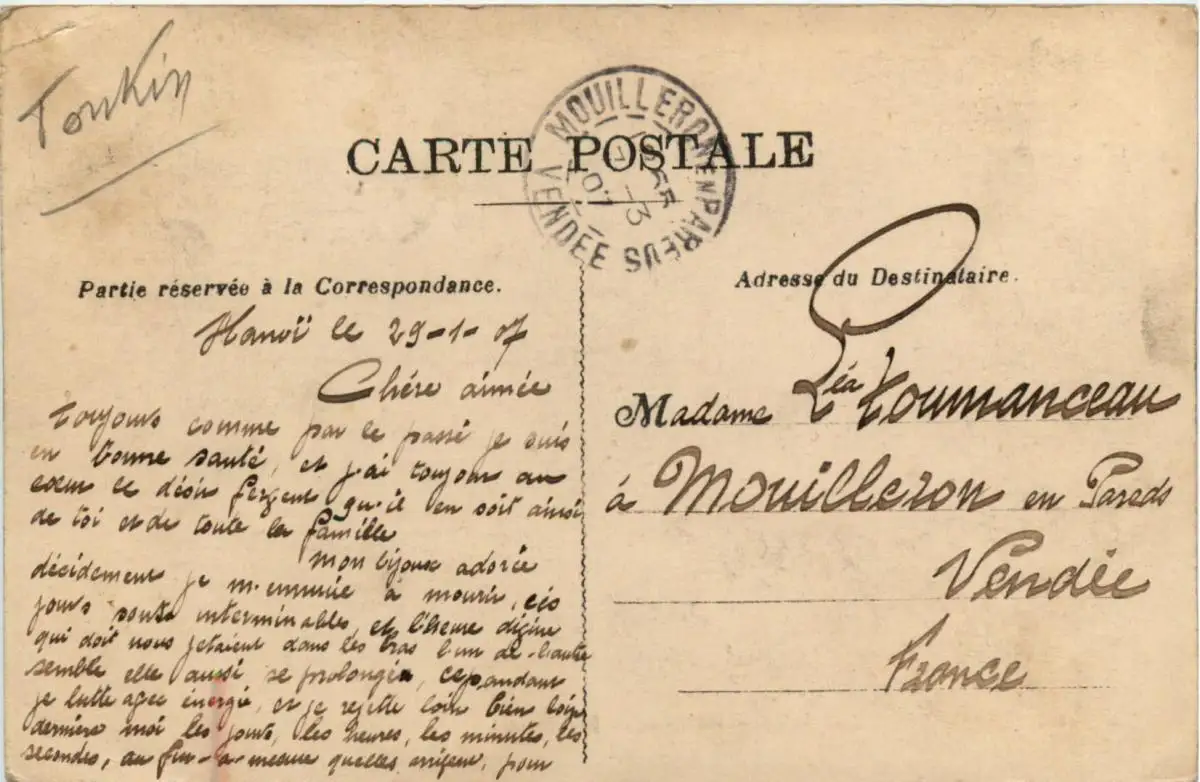 Tonkin
CARTE POSTALE
MOUILLERON EN PAREDS
VENDÉE
07
Partie réservée à la Correspondance.
Adresse du Destinataire.
Hanoï le 29-1-07
Chére aimée
toujours comme par le passé je suis
en bonne santé, et j'ai toujour au
cœur le désir qu'il en soit ainsi
de toi et de toute la famille
mon bijoux adorée
décidement je m'ennuie à mourir, ces
jours sont interminables, et l'heure
qui doit nous jetaient dans les bras l'un de l'autre
semble elle aussi se prolongée, cependant
je lutte avec énergie, et je rejette loin bien loin
derniere moi les jours, les heures, les minutes, les
secondes, au fur-a-mesure quelles arrivent, pour
Madame Léa Toumanceau
à Mouilleron en Pareds
Vendée
France